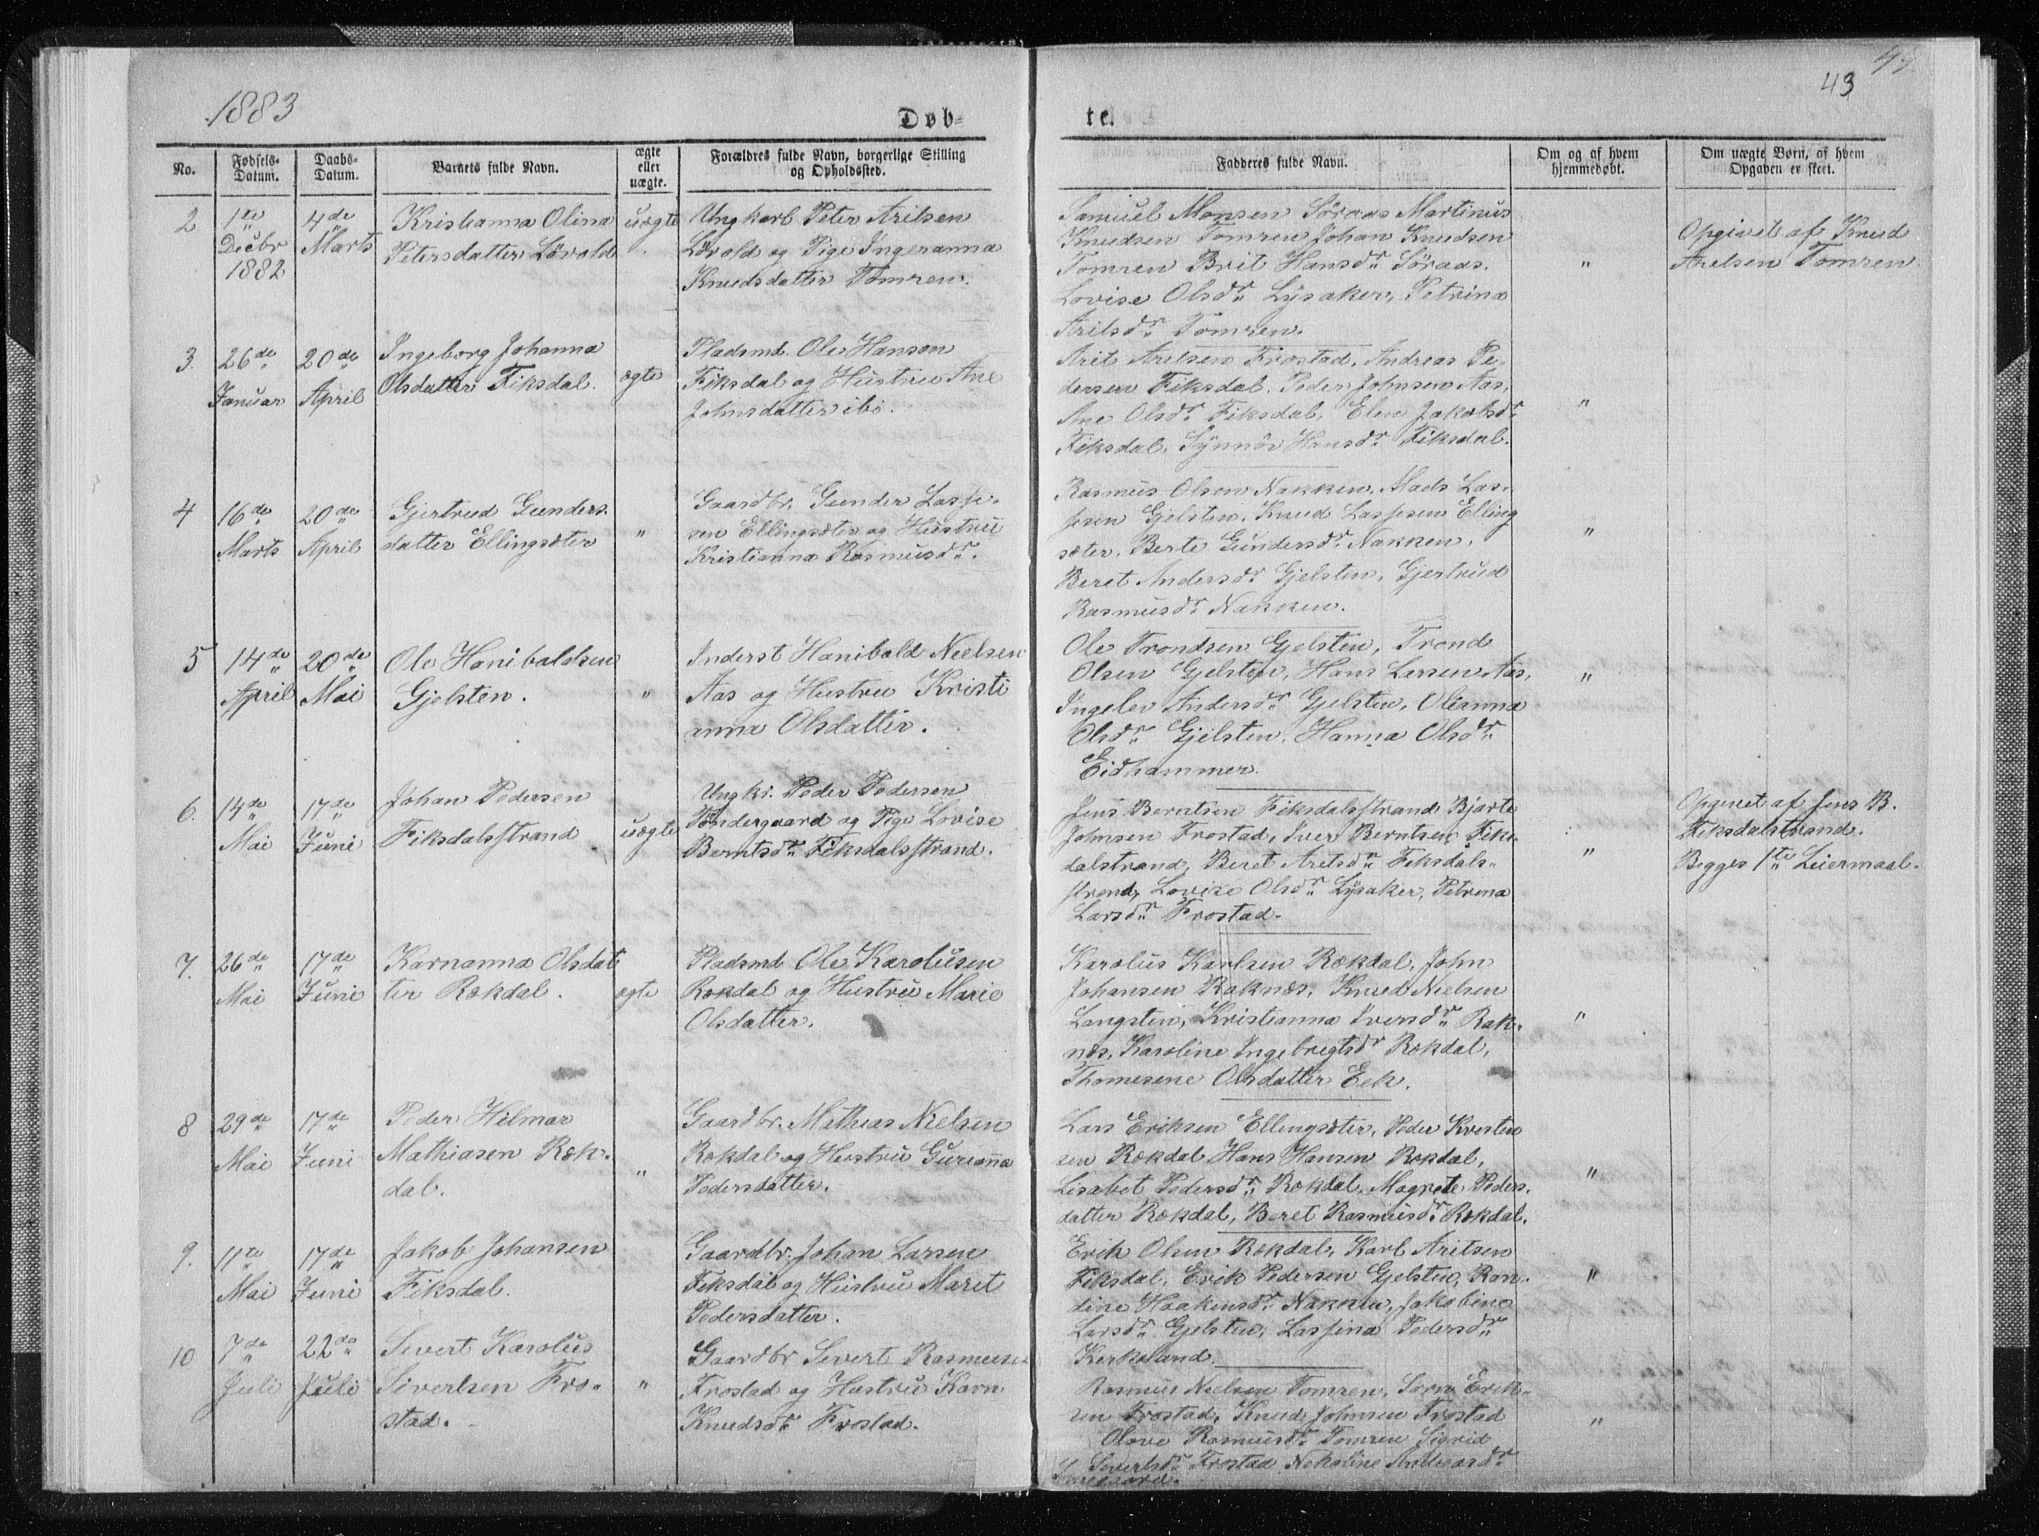 1883
Døb-
te.
43
No.
Fødsels-
Datum.
Daabs-
Datum.
Barnets fulde Navn.
ægte
eller
uægte.
Forældres fulde Navn, borgerlige Stilling
og Opholdssted.
Fadderes fulde Navn.
Om og af hvem
hjemmedøbt.
Om uægte Børn, af hvem
Opgaven er skeet.
2.
1ste
Decbr
1882
4de
Marts
Kristianna Olina
Petersdatter Lövold
uægte
Ungkarl Peter Aritsen
Lövold og Pige Ingeranna
Knudsdatter Tomren.
Samuel Monsen Söraas Martinus
Knudsen Tomren Johan Knudsen
Tomren Brit Hansdr. Söraas.
Lovise Olsdr. Lysaker, Petrina
Aritsdr. Tomren.
"
Opgivet af Knud
Arelsen Tomren
3.
26de
Januar
20de
April
Ingeborg Johanna
Olsdatter Fiksdal.
ægte
Pladsmd. Ole Hanson
Fiksdal og Hustru Ane
Johnsdatter ibd.
Arit Arelsen Frostad, Andreas Pe-
dersen Fiksdal, Peder Johnsen Aas,
Ane Olsdr. Fiksdal, Elen Jakobsdr.
Fiksdal, Synnöv Hansdr. Fiksdal.
"
4
16de
Marts
20de
April
Gjertrud Gunders-
datter Ellingsæter
"
Gaardbr. Gunder Lasse-
sen Ellingsæter og Hustru
Kristianna Rasmusdr.
Rasmus Olsen Nakken, Mads Las-
sesen Gjelsten, Knud Lassesen Elling
sæter, Berte Gundersdr. Nakken,
Beret Andersdr. Gjelsten, Gjertrud
Rasmusdr. Nakken.
"
5
14de
April
20de
Mai
Ole Hanibaldsen
Gjelsten.
"
Inderst Hanibald Nielsen
Aas og Hustru Kristi
anna Olsdatter.
Ole Trondsen Gjelsten, Trond
Olsen Gjelsten, Hans Larsen Aas,
Ingelev Andersdr. Gjelsten, Olianna
Olsdr. Gjelsten, Hanna Olsdr.
Eidhammer.
"
6.
14de
Mai
17de
Juni
Johan Pedersen
Fiksdalsstrand
uægte
Ungkr. Peder Pedersen
Töndergaard og Pige Lovise
Berntsdr. Fiksdalsstrand.
Jens Berntsen Fiksdalsstrand Bjarte
Johnsen Frostad, Iver Berntsen Fiks-
dalstrand, Beret Aritsdr. Fiksdals-
strand, Lovise Olsdr. Lysaker, Petrina
Larsdr. Frostad.
"
Opgivet af Jens B.
Fiksdalstrand.
Begges 1ste Leiermaal.
7.
26de
Mai
17de
Juni
Karnanna Olsdat
ter Rækdal.
ægte
Pladsmd Ole Karolusen
Rækdal og Hustru Marie
Olsdatter.
Karolus Karlsen Rækdal, John
Johansen Raknæs, Knud Nielsen
Langsten, Kristianna Iversdr. Rak-
næs, Karoline Ingebregtsdr. Rækdal,
Thomesene Olsdatter Eek.
"
8
29de
Mai
17de
Juni
Peder Hilmar
Mathiasen Ræk-
dal.
"
Gaardbr. Mathias Nielsen
Rækdal og Hustru Gurianna
Pedersdatter.
Lars Eriksen Ellingsæter, Peder Kersten
sen Rækdal Hans Hansen Rækdal,
Lisabet Pedersdr. Rækdal, Magrete Peders-
datter Rækdal, Beret Rasmusdr. Rækdal.
"
9.
11te
Mai
17de
Juni
Jakob Johansen
Fiksdal.
Gaardbr. Johan Larsen
Fiksdal og Hustru Maret
Pedersdatter.
Erik Olsen Rækdal, Karl Aritsen
Fiksdal, Erik Pedersen Gjelsten, Ran-
dine Haakensdr. Nakken, Jakobine
Larsdr. Gjelsten, Lassina Pedersdr.
Kerkeland.
"
10
7de
Juli
22de
Juli
Sivert Karolus
Sivertsen Fro-
stad.
"
Gaardbr Sivert Rasmusen
Frostad og Hustru Karn
Knudsdr. Frostad.
Rasmus Nielsen Tomren, Sørn Erik-
sen Frostad, Knud Johnsen Frostad
Olave Rasmusdr. Tomren Sigrid
Sivertsdr. Frostad Nekoline
"